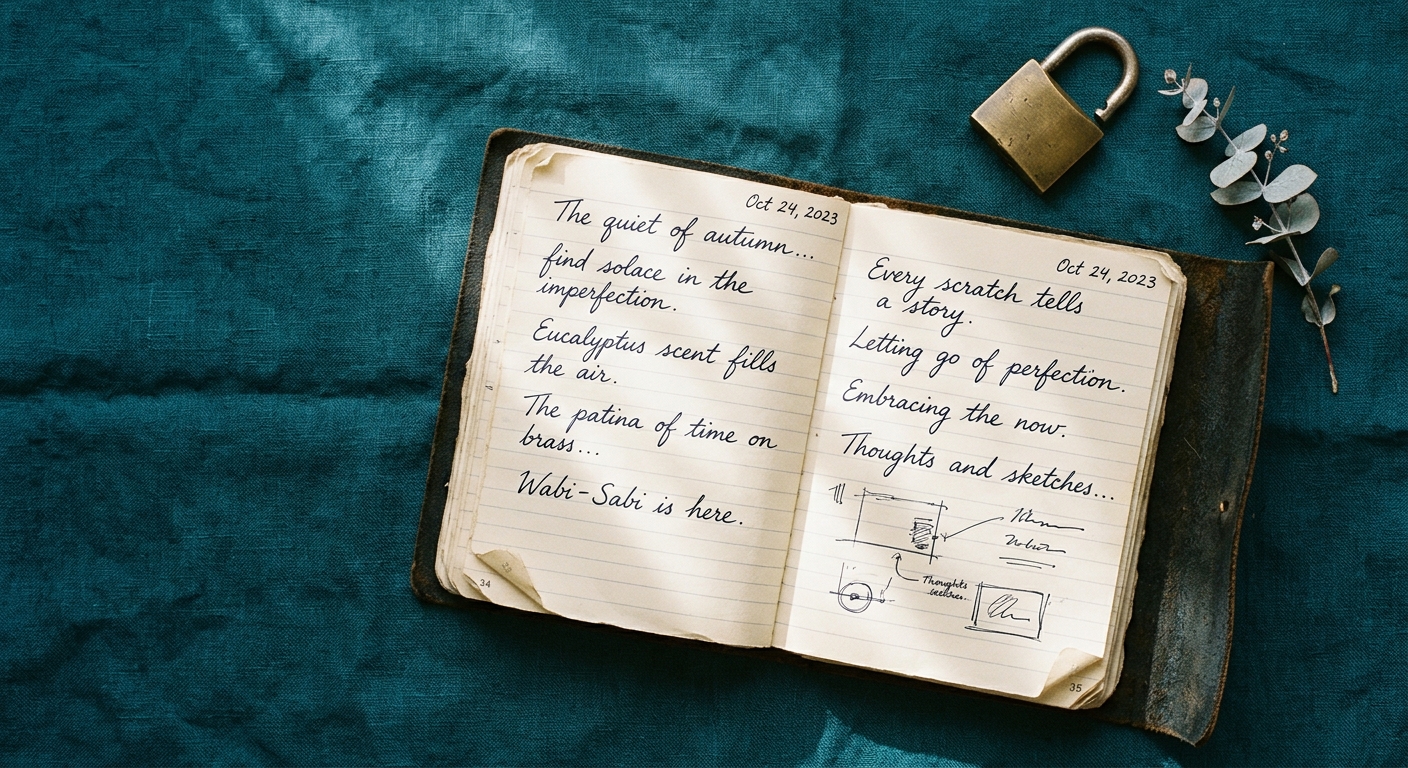 Oct 24, 2023
The quiet of autumn...
find solace in the
imperfection.
Eucalyptus scent fills
the air.
The patina of time on
brass...
Wabi-Sabi is here.
34
Oct 24, 2023
Every scratch tells
a story.
Letting go of perfection.
Embracing the now.
Thoughts and sketches...
Thoughts
35